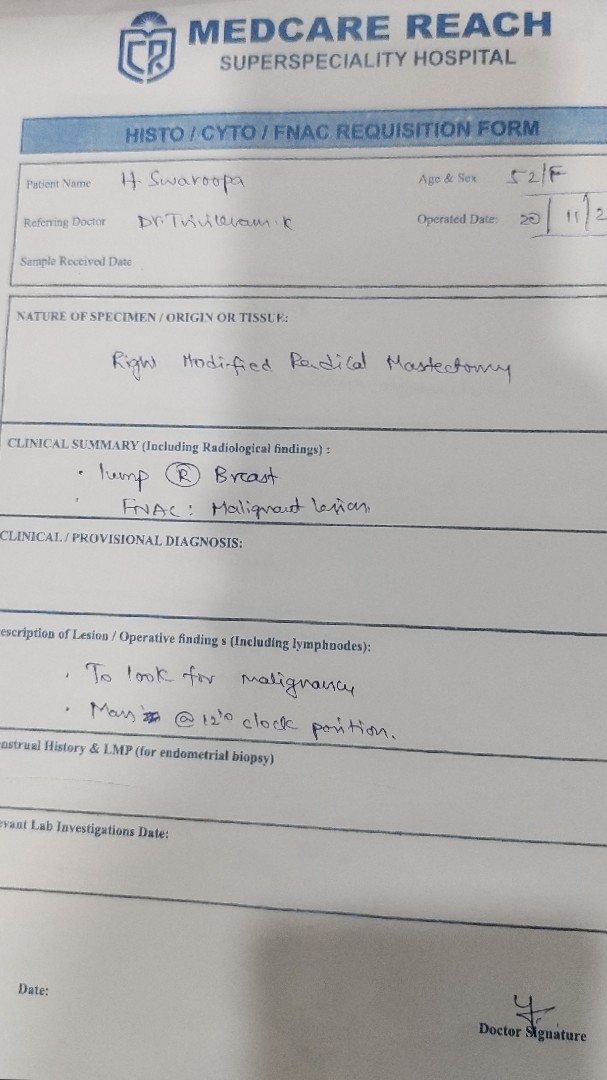 MEDCARE REACH
SUPERSPECIALITY HOSPITAL
HISTO / CYTO / FNAC REQUISITION FORM
Patient Name H. Swaroopa Age & Sex 52/F
Referring Doctor Dr. K Operated Date: 20/11/2
Sample Received Date
NATURE OF SPECIMEN / ORIGIN OR TISSUE:
Right Modified Radical Mastectomy
CLINICAL SUMMARY (Including Radiological findings) :
• lump Ⓡ Breast
FNAC : Malignant lesion.
CLINICAL / PROVISIONAL DIAGNOSIS:
escription of Lesion / Operative finding s (Including lymphnodes):
• To look for malignancy
• Mass @ 12'o clock position.
nstrual History & LMP (for endometrial biopsy)
evant Lab Investigations Date:
Date:
Doctor Signature